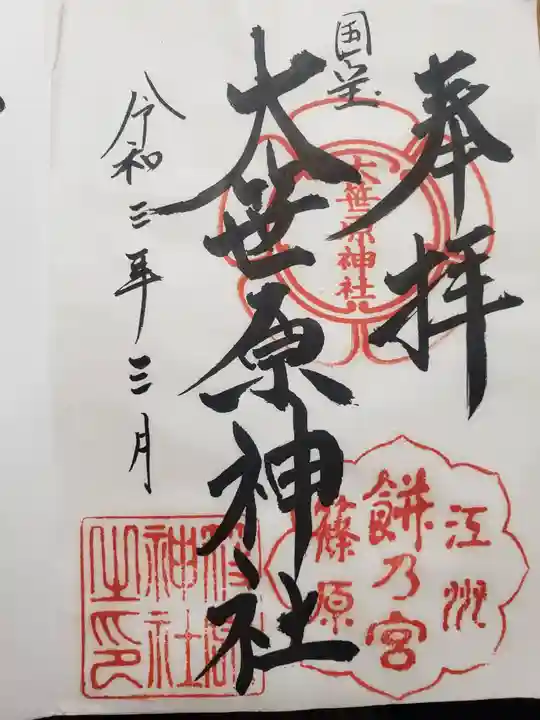 奉拝
国宝
大笹原神社
令和三年三月
大笹原神社
江州
餅乃宮
篠原
神社
之印